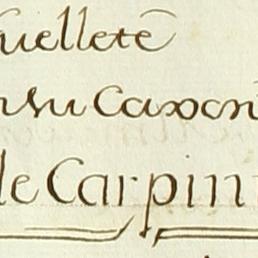 uelletē
nsu Caxon
le Carpin